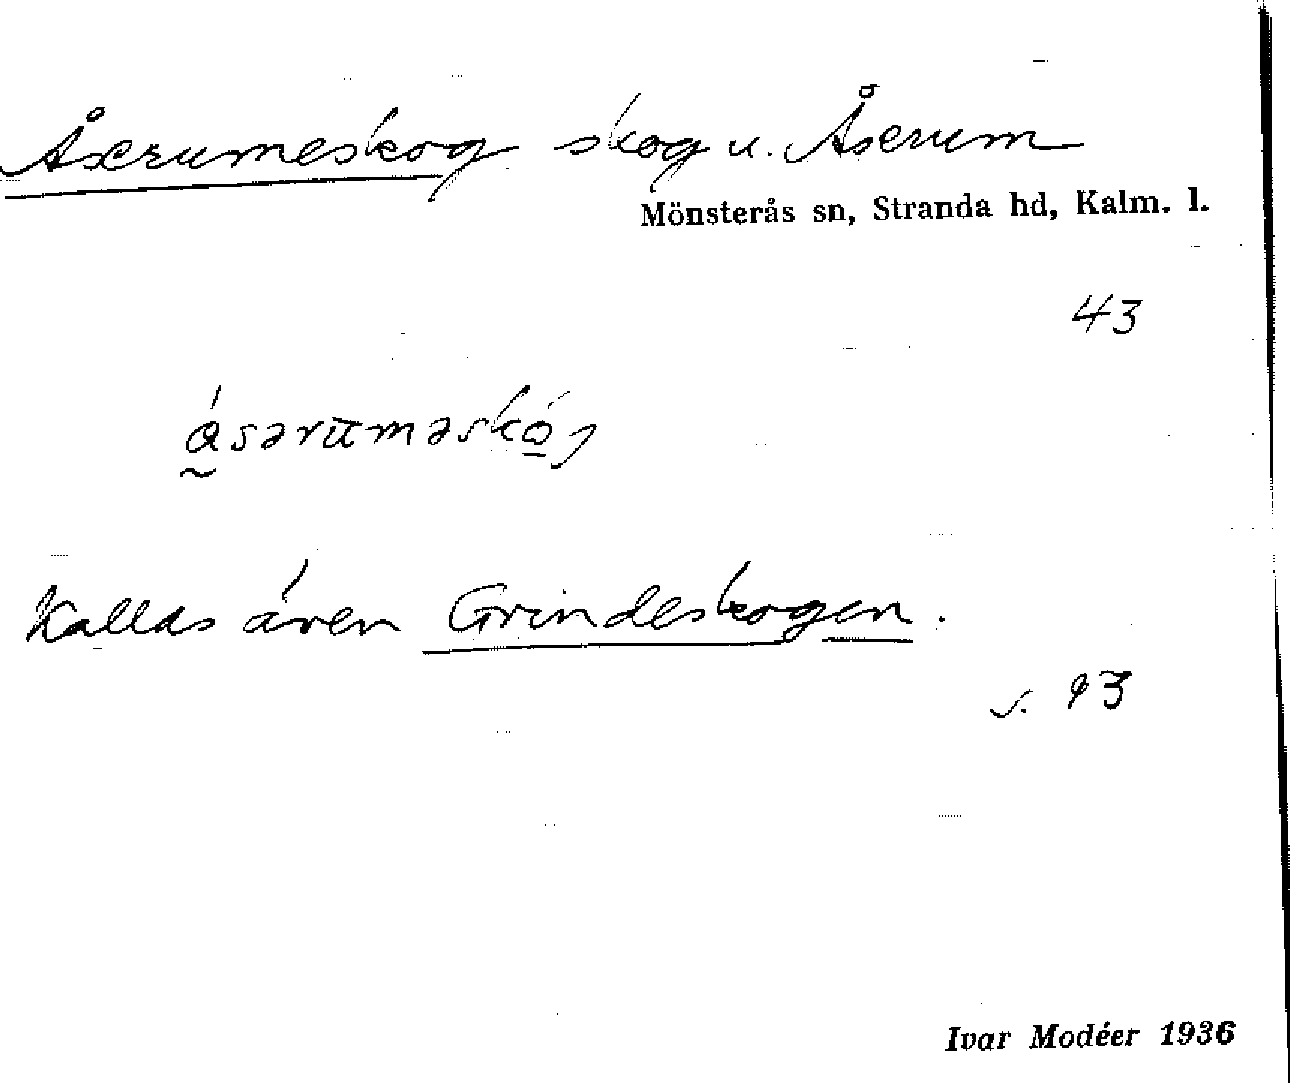 Åserumeskog skog u. Åserum
Mönsterås sn, Stranda hd, Kalm. l.
43
ásərūməskóg
Kallas även Grindeskogen.
s. 93
Ivar Modéer 1936